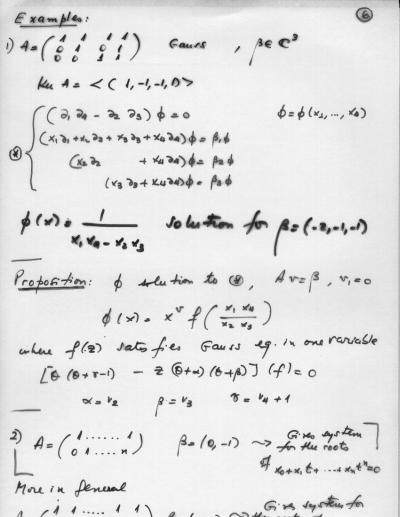 Examples: 6
1) A = ( 1 1 1 1
0 1 0 1
0 0 1 1 ) Gauss , β ∈ C³
Ker A = < ( 1, -1, -1, 1) >
(∂₁∂₄ - ∂₂∂₃) φ = 0 φ = φ(x₁, ..., x₄)
(x₁∂₁ + x₂∂₂ + x₃∂₃ + x₄∂₄) φ = β₁φ
(x₂∂₂ + x₄∂₄) φ = β₂φ
(x₃∂₃ + x₄∂₄) φ = β₃φ
φ(x) = 1 / (x₁x₄ - x₂x₃) solution for β = (-2, -1, -1)
Proposition: φ solution to ⊛, Av = β, v₁ = 0
φ(x) = x^v f( x₁x₄ / x₂x₃ )
where f(z) satisfies Gauss eq. in one variable
[θ(θ+γ-1) - z(θ+α)(θ+β)] (f) = 0
α = v₂ β = v₃ γ = v₄ + 1
2) A = ( 1 ...... 1
0 1 ...... n ) β = (0, -1) ⤳ Gives system
for the roots
of x₀ + x₁t + ... + xₙtⁿ = 0
More in general
Gives system for